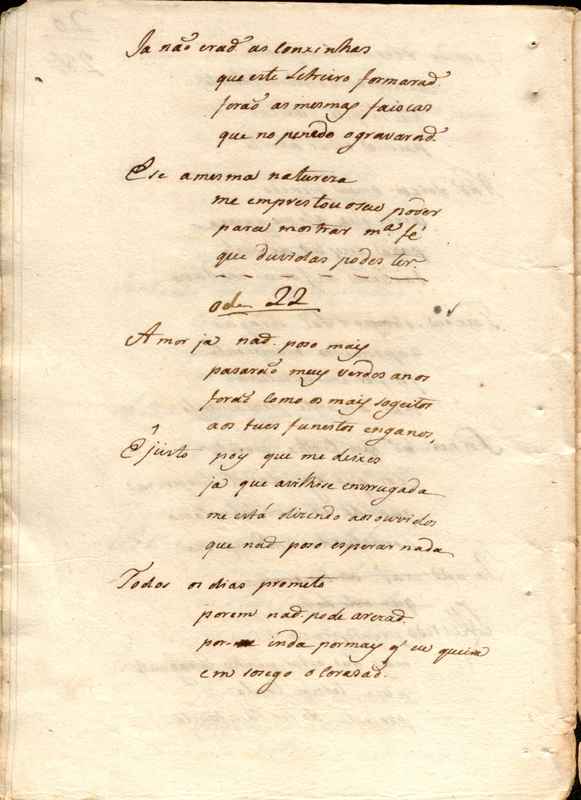 Ja não erão as conxinhas
que este Letreiro formarão
forão as mesmas faiscas
que no penedo ogravarão.
E se amesma natureza
me emprestou oseu poder
para mostrar mª fé
que duvidas podes ter.
ode 22
Amor ja nad. poso mais
pasarão meus verdes anos
forão como os mais sogeitos
aos tues funestos enganos,
E justo poiy que me deixes
ja que avelhise enrrugada
me está dizendo aos ouvidos
que nad poso esperar nada
Todos os dias prometo
porem nad pode arezad
por-me inda pormays q' eu queira
em sosego o Corasad.